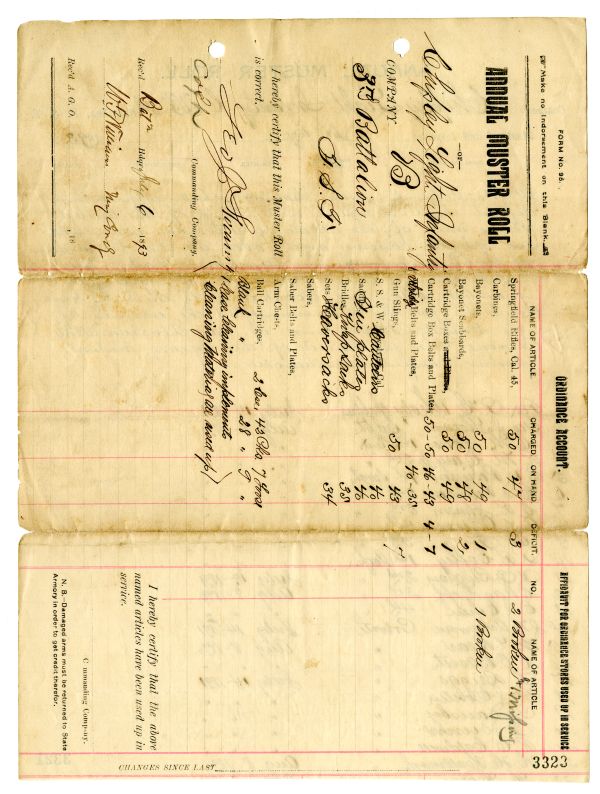 FORM No. 96.
Make no Indorsement on this Blank.
ANNUAL MUSTER ROLL
—OF—
Chipley Light Infantry
COMPANY B
3rd Battalion
F. S. T.
I hereby certify that this Muster Roll
is correct.
Geo
Capt
Commanding Company.
Rec'd Batn Hdqrs July 6 1893
Maj Comdg
Rec'd A. G. O. 18
ORDINANCE ACCOUNT.
NAME OF ARTICLE. CHARGED. ON HAND. DEFICIT.
Springfield Rifles, Cal. 45, 50 47 3
Carbines,
Bayonets, 50 49 1
Bayonet Scabbards, 50 48 2
Cartridge Boxes and Plates, 50 49 1
Cartridge Box Belts and Plates, 50-50 46-43 4-7
Belts and Plates, 40-38
Gun Slings, 50 43 7
S. S. & W. Canteens 40
Gun plates 40
Bridles Knapsacks 38
Sets Haversacks 34
Sabers,
Saber Belts and Plates,
Arm Chests,
Ball Cartridges, 2 Cas, 43 Cks 7
Blank " 28 " 9 "
(Have cleaning implements
Cleaning material all used up)
AFFIDAVIT FOR ORDINANCE STORES USED UP IN SERVICE
NO. NAME OF ARTICLE
2 Broken & 1 Missing
1 Broken
I hereby certify that the above
named articles have been used up in
service.
C mmanding Company.
N. B.—Damaged arms must be returned to State
Armory in order to get credit therefor.
3323
CHANGES SINCE LAST